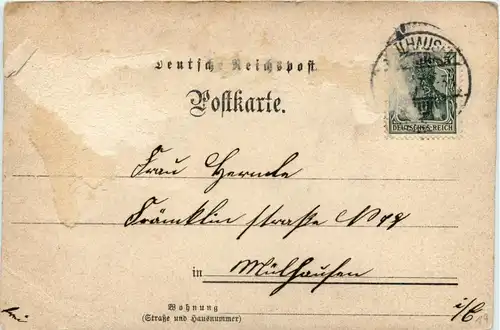 Deutsche Reichspost
Postkarte.
MÜLHAUSEN
DEUTSCHES REICH
Frau Hermle
Fränklin straße No 49
in Mülhausen
i/E
Wohnung
(Straße und Hausnummer)